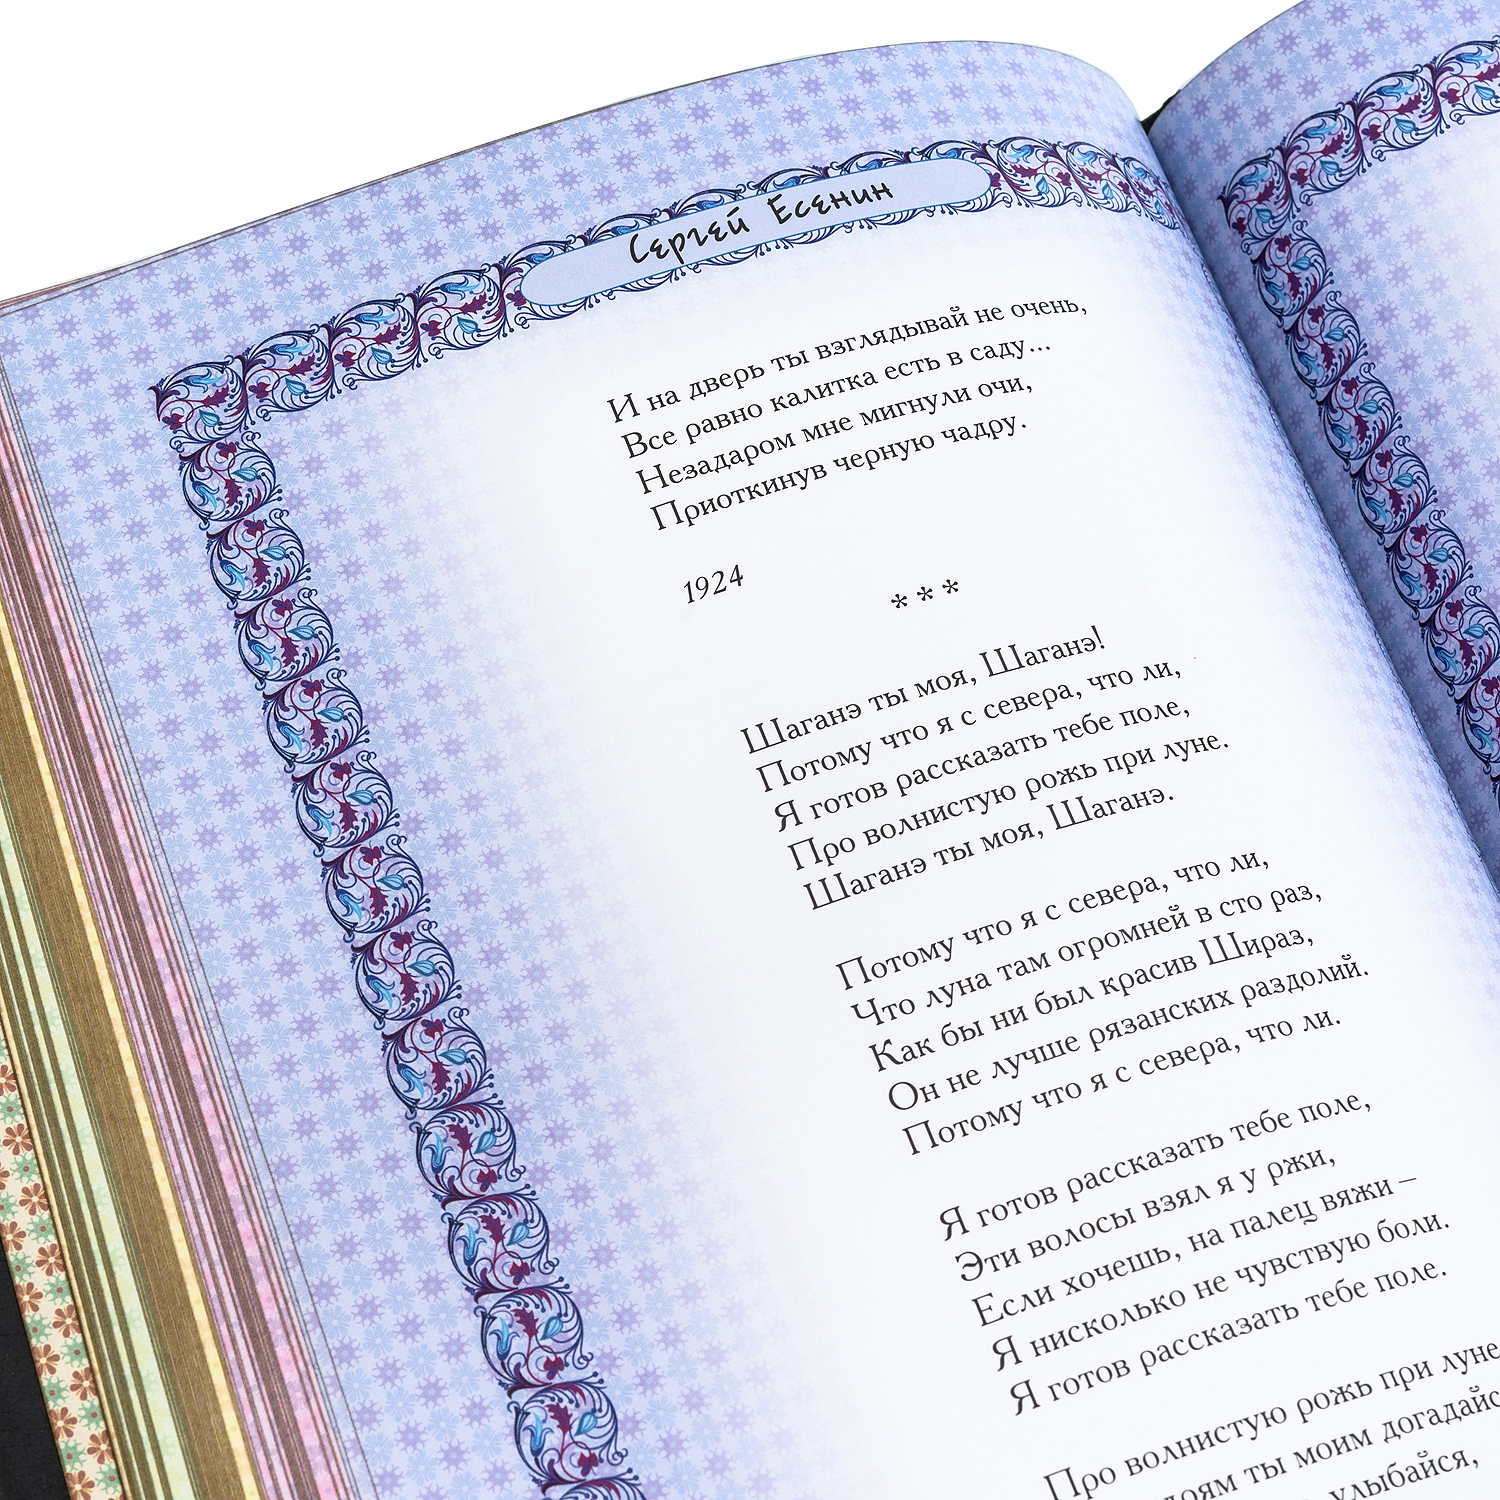 Сергей Есенин
И на дверь ты взглядывай не очень,
Все равно калитка есть в саду...
Незадаром мне мигнули очи,
Приоткинув черную чадру.
1924
* * *
Шаганэ ты моя, Шаганэ!
Потому что я с севера, что ли,
Я готов рассказать тебе поле,
Про волнистую рожь при луне.
Шаганэ ты моя, Шаганэ.
Потому что я с севера, что ли,
Что луна там огромней в сто раз,
Как бы ни был красив Шираз,
Он не лучше рязанских раздолий.
Потому что я с севера, что ли.
Я готов рассказать тебе поле,
Эти волосы взял я у ржи,
Если хочешь, на палец вяжи –
Я нисколько не чувствую боли.
Я готов рассказать тебе поле.
Про волнистую рожь при луне
ты моим догадайс
улыбайся,